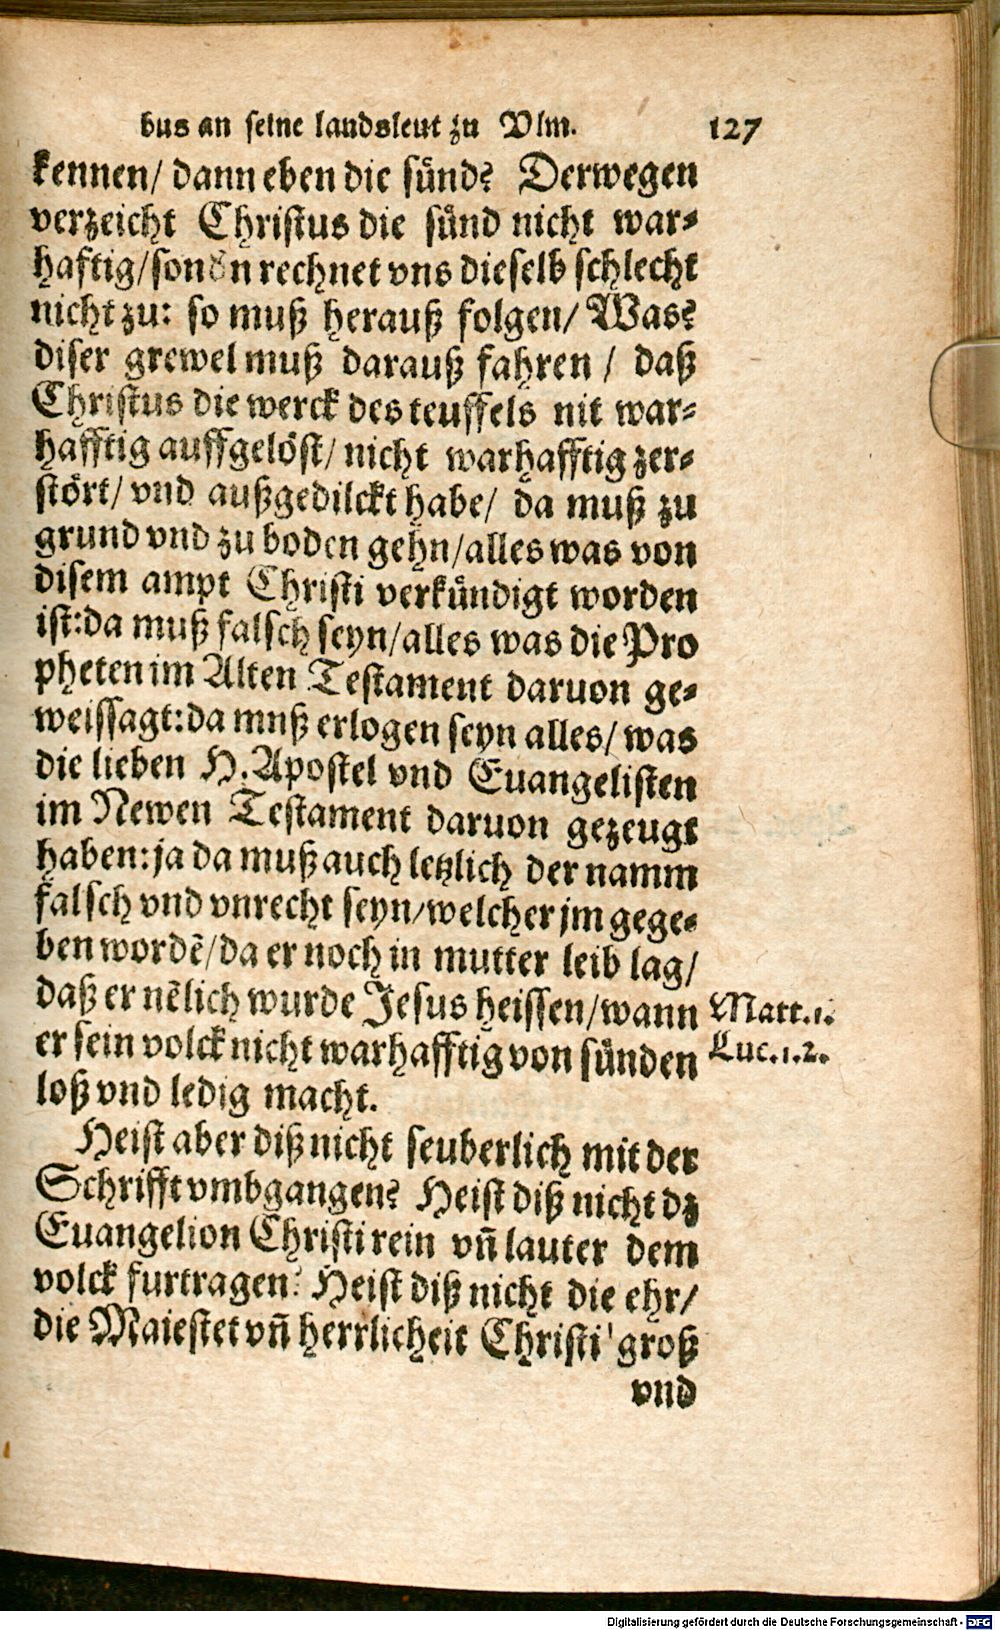 bus an seine landsleut zu Vlm. 127
kennen/ dann eben die sünd? Derwegen
verzeicht Christus die sünd nicht war⸗
haftig/ sondn rechnet vns dieselb schlecht
nicht zu: so muß herauß folgen/ Was?
diser grewel muß darauß fahren / daß
Christus die werck des teuffels nit war⸗
hafftig auffgelöst/ nicht warhafftig zer⸗
stört/ vnd außgedilckt habe/ da muß zu
grund vnd zu boden gehn/ alles was von
disem ampt Christi verkündigt worden
ist: da muß falsch seyn/ alles was die Pro
pheten im Alten Testament daruon ge⸗
weissagt: da mnß erlogen seyn alles/ was
die lieben H. Apostel vnd Euangelisten
im Newen Testament daruon gezeugt
haben: ja da muß auch letzlich der namm
falsch vnd vnrecht seyn/ welcher jm gege⸗
ben wordẽ/ da er noch in mutter leib lag/
daß er nẽlich wurde Jesus heissen/ wann
er sein volck nicht warhafftig von sünden
loß vnd ledig macht.
Matt.1.
Luc.1.2.
Heist aber diß nicht seuberlich mit der
Schrifft vmbgangen? Heist diß nicht dz
Euangelion Christi rein vñ lauter dem
volck furtragen? Heist diß nicht die ehr/
die Maiestet vñ herrlicheit Christi groß
vnd
Digitalisierung gefördert durch die Deutsche Forschungsgemeinschaft - DFG